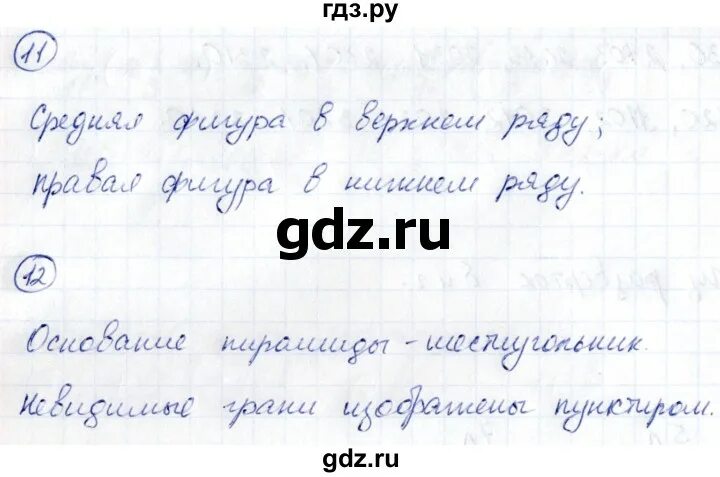 гдз.ру
11
Средняя фигура в верхнем ряду;
правая фигура в нижнем ряду.
gdz.ru
12
Основание пирамиды - шестиугольник.
Невидимые грани изображены пунктиром.
gdz.ru